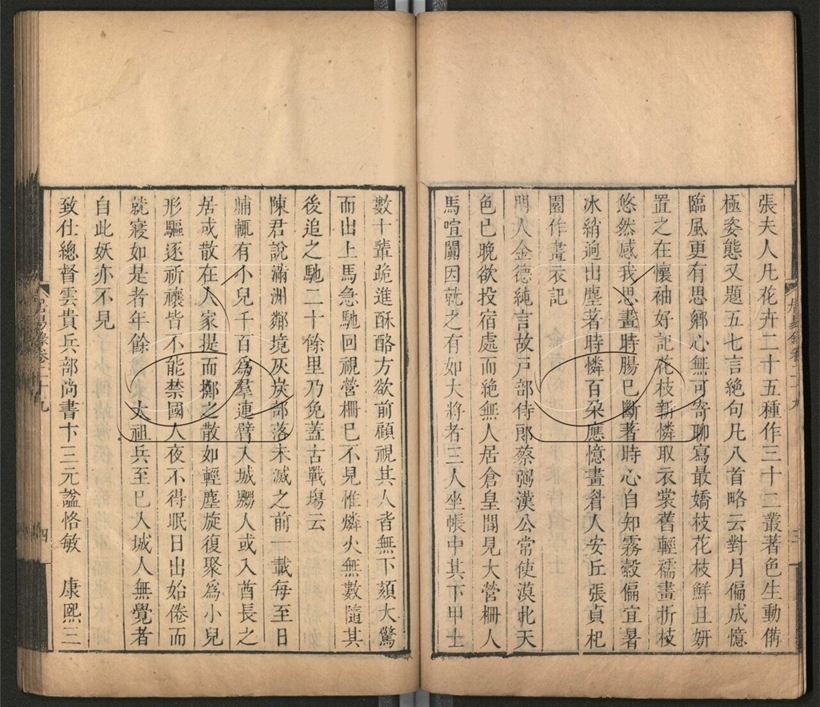 張夫人凡花卉二十五種作三十二叢著色生動備
極姿態又題五七言絶句凡八首略云對月偏成憶
臨風更有思鄉心無可寄聊寫最嬌枝花枝鮮且妍
置之在懷袖好記花枝新憐取衣裳舊輕襦畫折枝
悠然感我思畫時腸已斷著時心自知霧縠偏宜暑
冰綃逈出塵著時憐百朶應憶畫眷人安丘張貞杞
園作畫衣記
門人金德純言故戸部侍郎蔡弼漢公常使漠北天
色已晚欲投宿處而絶無人居倉皇間見大營柵人
馬喧闐因就之有如大將者三人坐帳中其下甲士
數十輩跪進酥酪方欲前顧視其人者無下頦大驚
而出上馬急馳回視營柵已不見惟燐火無數隨其
後追之馳二十餘里乃免蓋古戰塲云
陳君說滿洲鄰境灰炭部落未滅之前一載每至日
晡輒有小兒千百爲羣連臂入城嬲人或入酋長之
居或散在人家提而擲之散如輕塵旋復聚爲小兒
形驅逐祈禳皆不能禁國人夜不得眠日出始倦而
就寢如是者年餘 太祖兵至已入城人無覺者
自此妖亦不見
致仕總督雲貴兵部尚書卞三元謚恪敏 康熙三
居易錄卷二十九
四
居易錄卷二十九
三